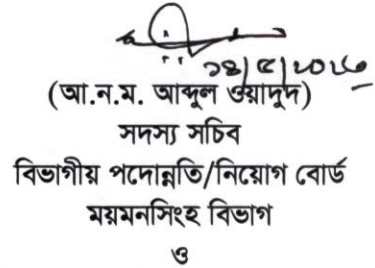 ১৪/৫/২০২৬
(আ.ন.ম. আব্দুল ওয়াদুদ)
সদস্য সচিব
বিভাগীয় পদোন্নতি/নিয়োগ বোর্ড
ময়মনসিংহ বিভাগ
ও